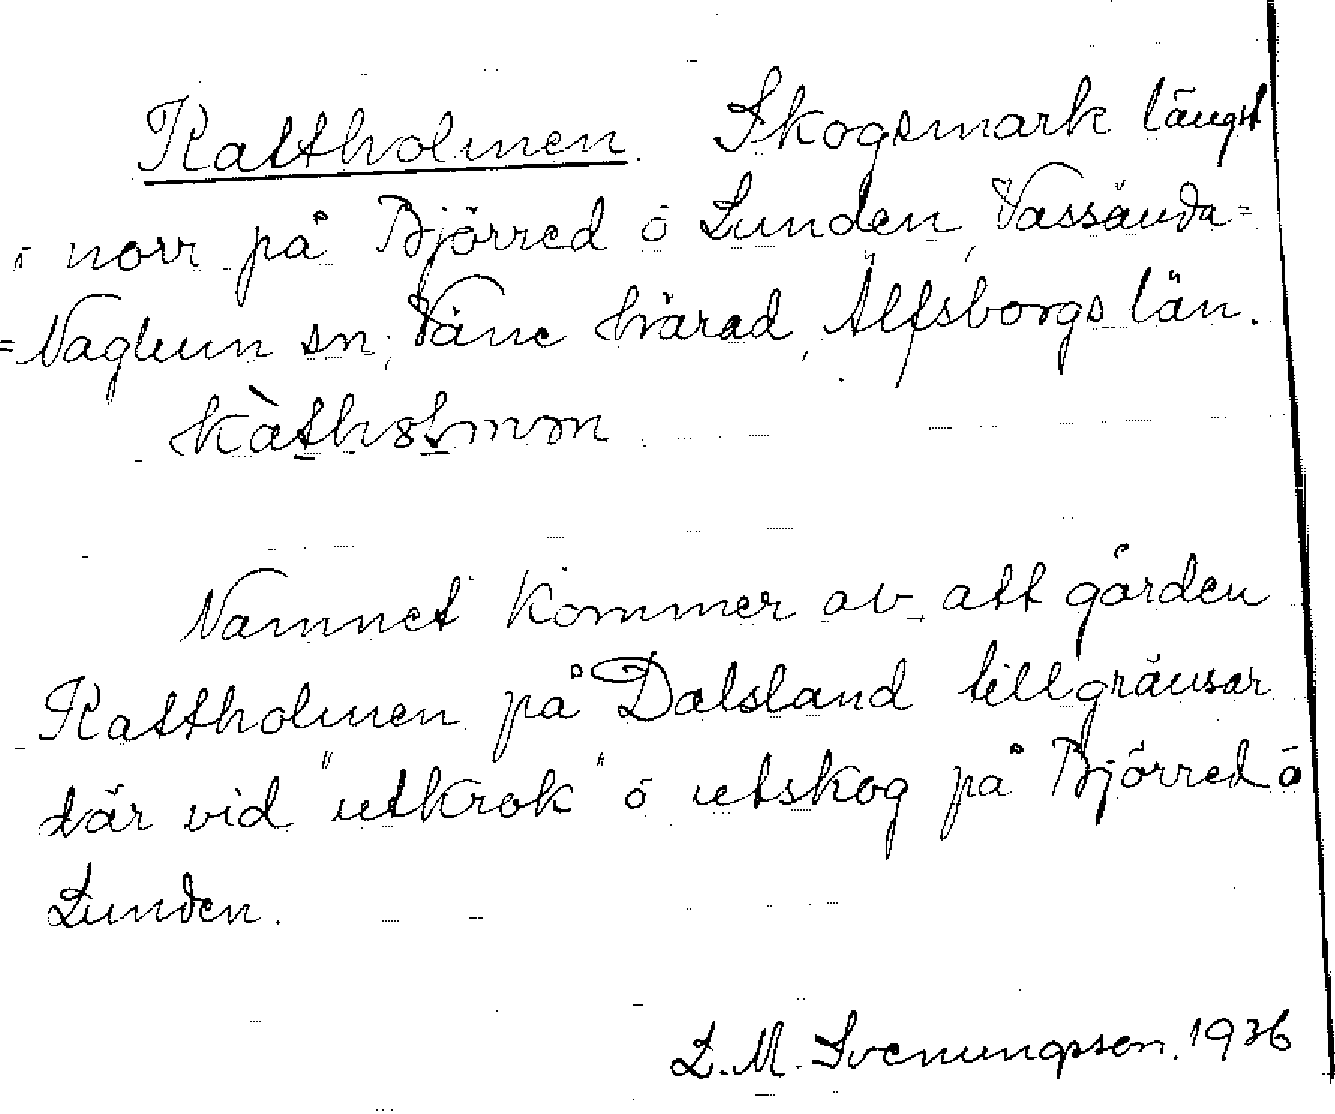 Kattholmen. Skogsmark längst
i norr på Björred ö Lunden, Vassända=
=Naglum sn, Väne härad, Älfsborgs län.
Namnet kommer av att gården
Kattholmen på Dalsland tillgränsar
där vid "utkrok" ö utskog på Björred ö
Lunden.
L. M. Svenungsson. 1936